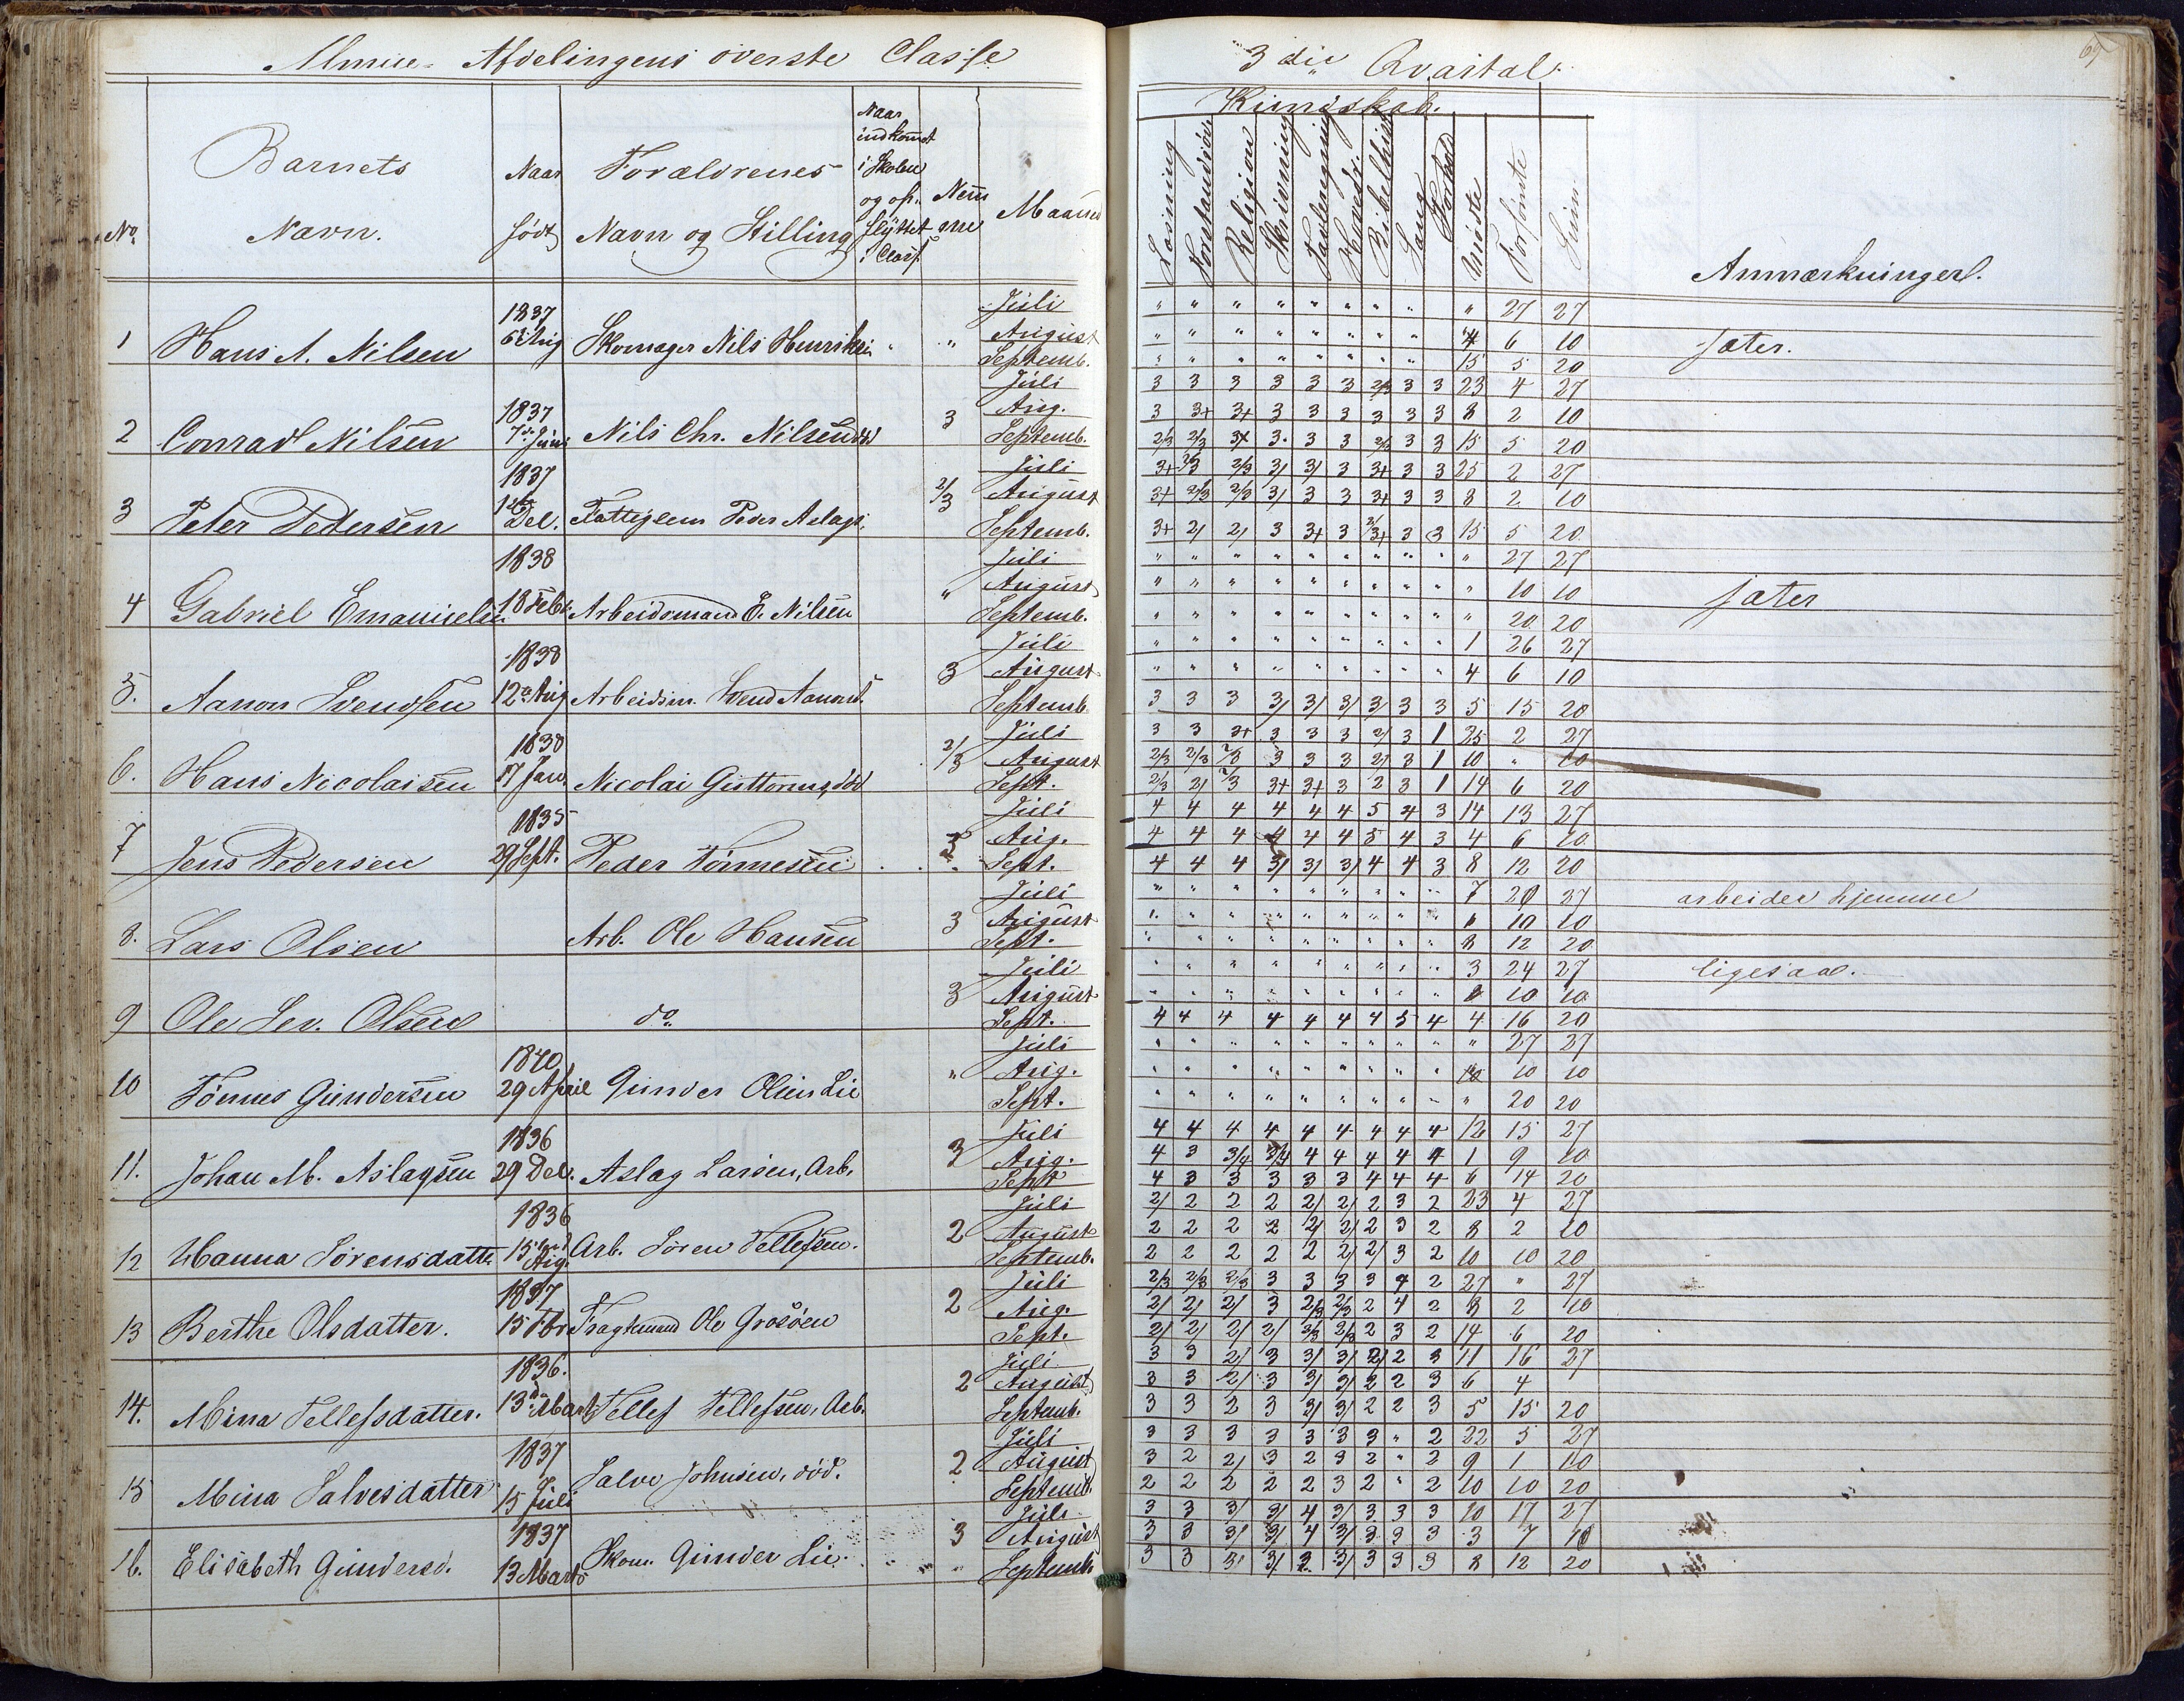 Almue-Afdelingens överste Classe
3die Qvartal.
69
No.
Barnets Navn.
Naar födt
Forældrenes Navn og Stilling
Naar indkomet i Skolen og opflyttet i Class.
Nemme
Maaned
Kundskab.
Læsning
Forstandsöv.
Religion
Skrivning
Tavleregning
Hovedr.
Bibelhist.
Sang
Forhold
Mödte
Forsömte
Sum
Anmærkninger.
1 Hans A. Nilsen 1837 6te Aug Skomager Nils Henriksen "
Juli " " " " " " " " " 27 27
August " " " " " " " " 4 6 10 Jæter.
Septemb. " " " " " " " " 15 5 20
2 Conrad Nilsen 1837 7de Juni Nils Chr. Nilsen död 3
Juli 3 3 3 3 3 3 2/3 3 3 23 4 27
Aug. 3 3+ 3+ 3 3 3 3 3 3 8 2 10
Septemb. 2/3 2/3 3+ 3 3 3 2/3 3 3 15 5 20
3 Peter Pedersen 1837 1ste Dec. Fattiglem Peder Aslags. 2/3
Juli 3+ 2/3 2/3 3/ 3/ 3 3+ 3 3 25 2 27
August 3+ 2/3 2/3 3/ 3 3 3+ 3 3 8 2 10
Septemb. 3+ 2/ 2/ 3 3+ 3 2/3+ 3 3 15 5 20
4 Gabriel Emanuels. 1838 18 Febr. Arbeidsmand E. Nilsen "
Juli " " " " " " " " " " 27 27
August " " " " " " " " " " 10 10 Jæter
Septemb. " " " " " " " " " " 20 20
5. Aanon Svendsen 1838 12te Aug Arbeidsm. Svend Aanons. 3
Juli " " " " " " " " " 1 26 27
August " " " " " " " " " 4 6 10
Septemb 3 3 3 3/ 3/ 3/ 3/ 3 3 5 15 20
6. Hans Nicolaisen 1838 17 Jan. Nicolai Guttorms, död 2/3
Juli 3 3 3+ 3 3 3 2/ 3 1 25 2 27
August 2/3 2/3 2/3 3 3 3 2/ 3 1 10 " 10
Sept. 2/3 2/ 2/3 3+ 3+ 3 2 3 1 14 6 20
7 Jens Pedersen 1835 29 Sept. Peder Tönnesen 3
Juli 4 4 4 4 4 4 5 4 3 14 13 27
Aug. 4 4 4 4 4 4 5 4 3 4 6 10
Sept. 4 4 4 3/ 3/ 3/ 4 4 3 8 12 20
8. Lars Olsen Arb. Ole Hansen 3
Juli " " " " " " " " " 7 20 27 arbeider hjemme
August " " " " " " " " " " 10 10
Sept. " " " " " " " " " 8 12 20
9 Ole Lev. Olsen do. 3
Juli " " " " " " " " " 3 24 27 ligesaa.
August " " " " " " " " " 10 10
Sept. 4 4 4 4 4 4 4 5 4 4 16 20
10 Tönnes Gundersen 1840 29 April Gunder Olsen Lie "
Juli " " " " " " " " " " 27 27
Aug. " " " " " " " " " 10 10
Sept. " " " " " " " " " " 20 20
11. Johan M. Aslagsen 1836 29 Dec. Aslag Larsen, Arb. 3
Juli 4 4 4 4 4 4 4 4 4 12 15 27
Aug. 4 3 3/4 3/4 4 4 4 4 4 1 9 10
Sept 4 3 3 3 3 3 4 4 4 6 14 20
12 Hanna Sörensdatter 1836 15 Aug. Arb. Sören Tellefsen. 2
Juli 2/ 2 2 2 2/ 2/ 2 3 2 23 4 27
August 2 2 2 2 2/ 2/ 2 3 2 8 2 10
Septemb. 2 2 2 2 2 2/ 2/ 3 2 10 10 20
13 Berthe Olsdatter. 1837 15 Fbr Fragtmand Ole Grosöen 2
Juli 2/3 2/3 2/3 3 3 3 3 4 2 27 " 27
Aug. 2/ 2/ 2/ 3 2/3 2/3 2 4 2 8 2 10
Sept. 2/ 2/ 2/ 2/ 3/3 2/3 2 3 2 14 6 20
14. Mina Tellefsdatter. 1836. 13de Marts Tellef Tellefsen, Arb. 2
Juli 3 3 2/ 3 3/ 3/ 2/ 2 3 11 16 27
August 3 3 2/ 3 3/ 3/ 2 2 3 6 4
Septemb. 3 3 2 3 3/ 3/ 2 2 3 5 15 20
15 Mina Salvesdatter 1837 15 Juli Salve Johnsen, död. 2
Juli 3 3 3 3 3 3 3 " 2 22 5 27
August 3 2 2/ 3 2 3 2 " 2 9 1 10
Septemb. 2 2 2 2 2 3 2 " 2 10 10 20
16. Elisabeth Gundersd. 1837 13 Marts Skom. Gunder Lie. 3
Juli 3 3 3/ 3/ 4 3/ 3 3 3 10 17 27
August 3 3 3/ 3/ 4 3/ 3 3 3 3 7 10
Septemb 3 3 3/ 3/ 3 3/ 3 3 3 8 12 20